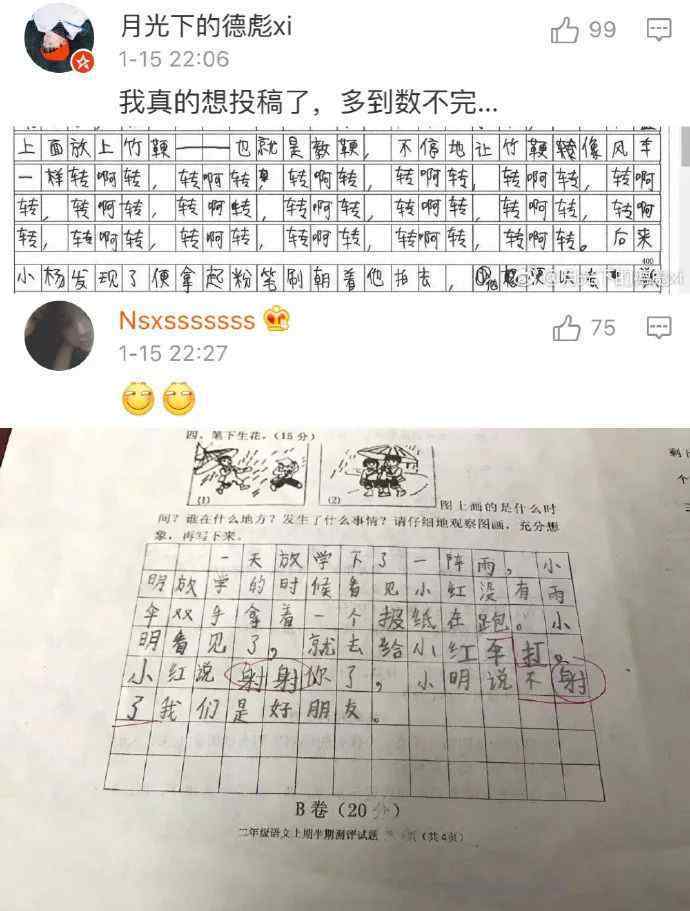 月光下的德彪xi
99
1-15 22:06
我真的想投稿了，多到数不完...
上面放上竹鞭——也就是教鞭，不停地让竹鞭像风车
一样转啊转，转啊转，转啊转，转啊转，转啊转，转啊
转，转啊转，转啊转，转啊转，转啊转，转啊转，转啊
转，转啊转，转啊转，转啊转，转啊转，转啊转。后来
400
小杨发现了便拿起粉笔刷朝着他拍去，
Nsxsssssss
75
1-15 22:27
四、笔下生花。（15分）
(1)
(2)
图上画的是什么时
间？谁在什么地方？发生了什么事情？请仔细地观察图画，充分想
象，再写下来。
一天放学下了一阵雨，小
明放学的时候看见小红没有雨
伞双手拿着一个报纸在跑。小
明看见了，就去给小红伞打。
小红说射射你了，小明说不射
了我们是好朋友。
B卷（20分）
二年级语文上期半期测评试题
（共4页）